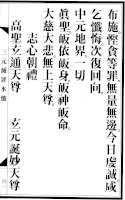 布施慳貪等罪無量無邊今日虔誠咸
乞懺悔次復回向
中元地界一切
眞聖皈依皈身皈神皈命
大慈大悲無上天尊
志心朝禮
高聖玄通天尊
玄元誕妙天尊
三元施罪水懺